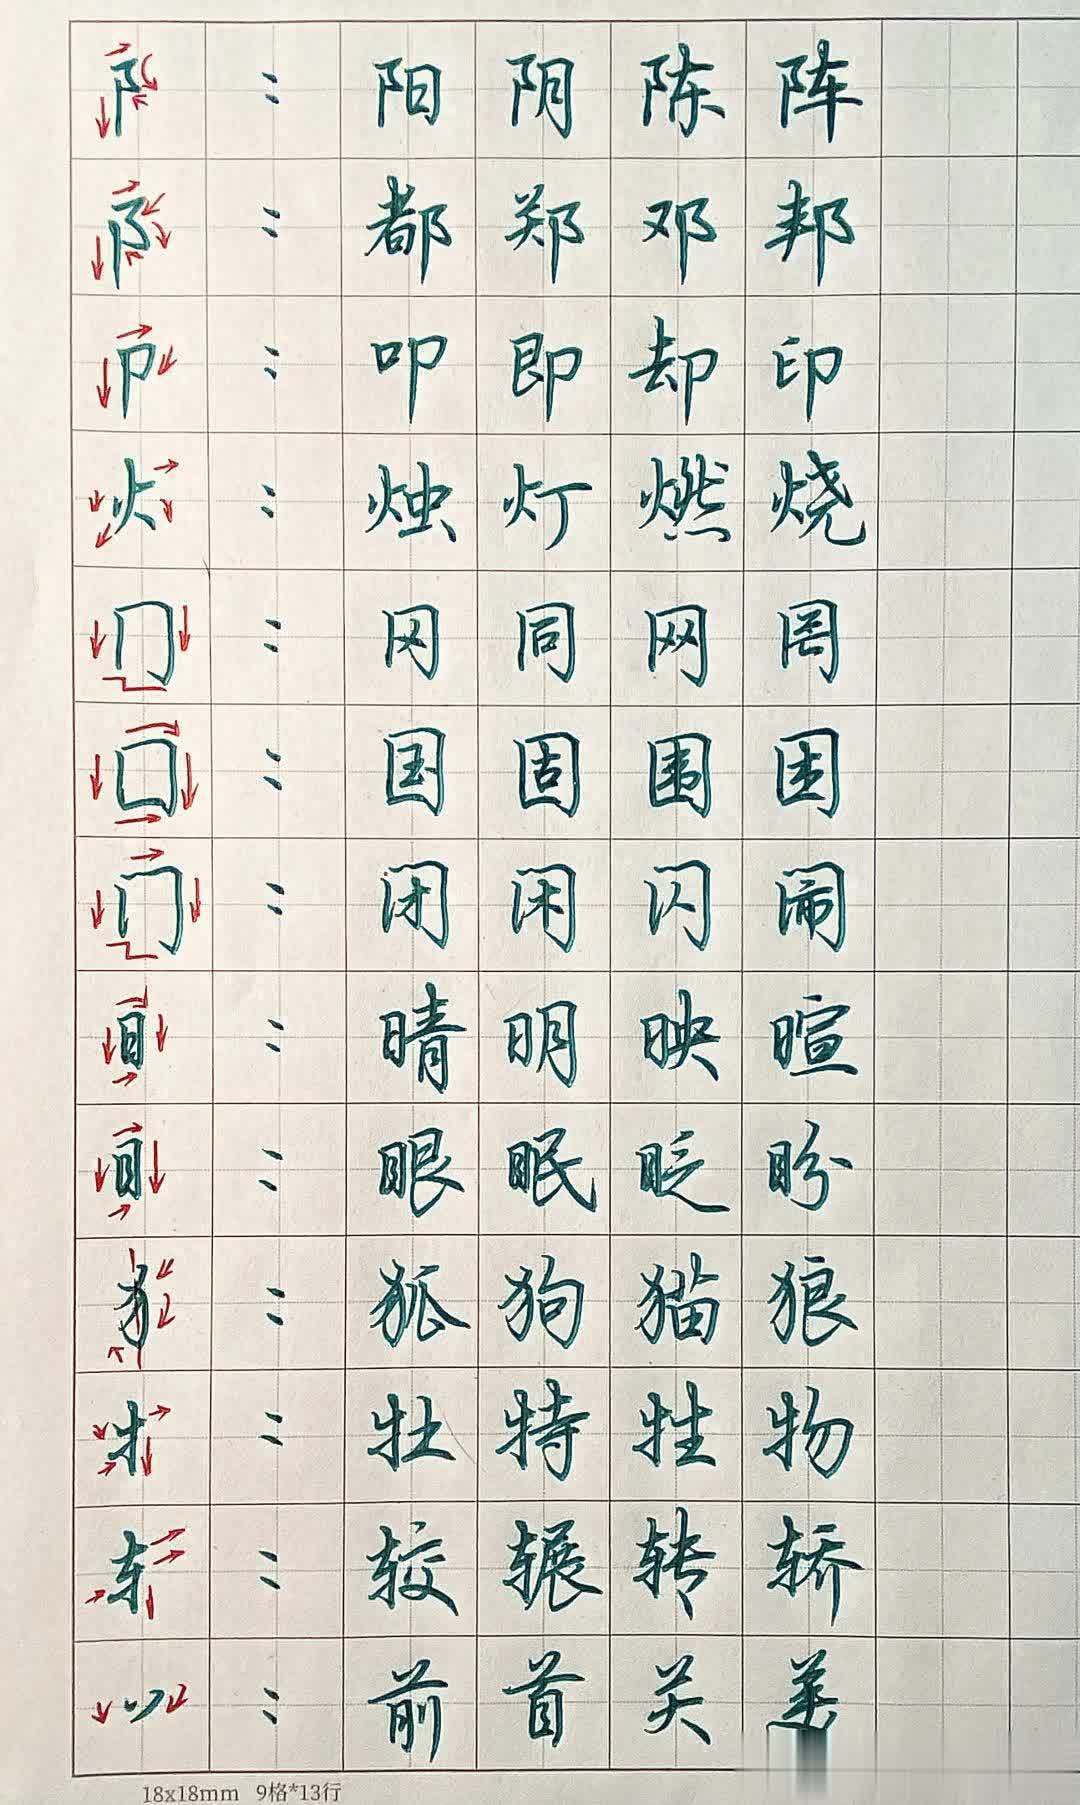 阝：阳阴陈阵
阝：都郑邓邦
卩：叩即却印
火：烛灯燃烧
冂：冈同网罔
囗：国固围困
门：闭闲闪闹
日：晴明映暄
目：眼眠眨盼
犭：狐狗猫狼
牜：牡特牲物
车：较辗转轿
丷：前首关
18x18mm 9格*13行